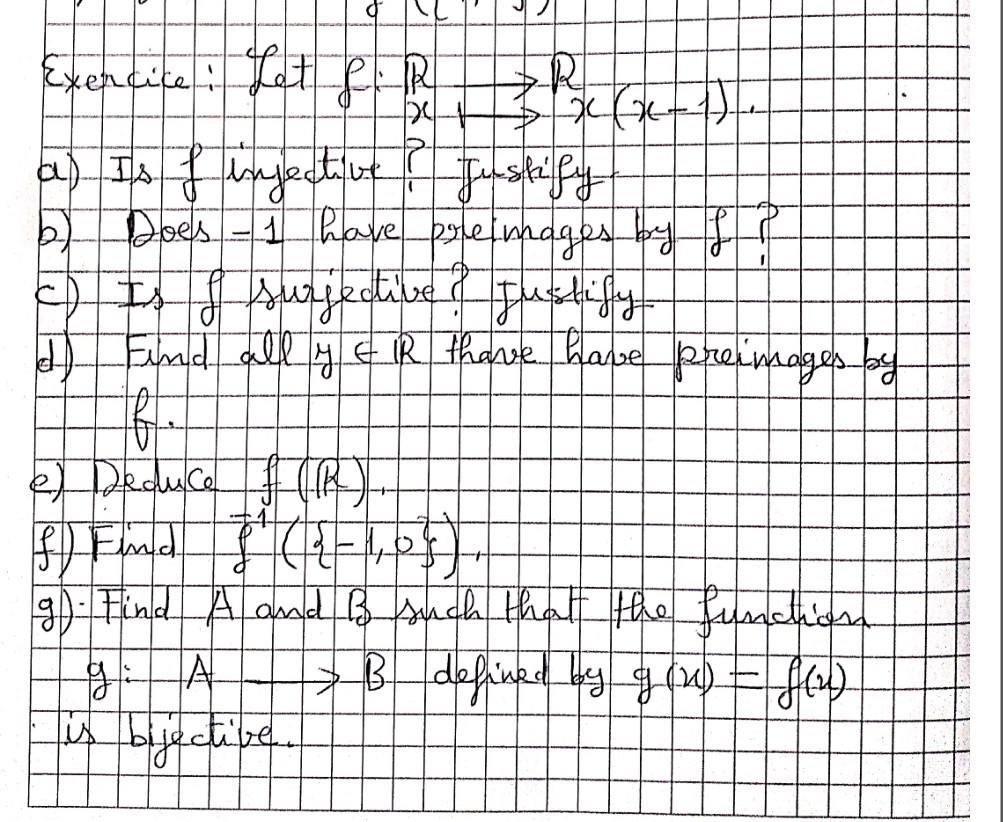 Exercice: Let f: ℝ ⟶ ℝ
x ⟼ x(x-1).
a) Is f injective? Justify
b) Does -1 have preimages by f?
c) Is f surjective? Justify
d) Find all y ∈ ℝ thave have preimages by
f.
e) Deduce f(ℝ).
f) Find f⁻¹({-1,0}).
g) Find A and B such that the function
g: A ⟶ B defined by g(x) = f(x)
is bijective.